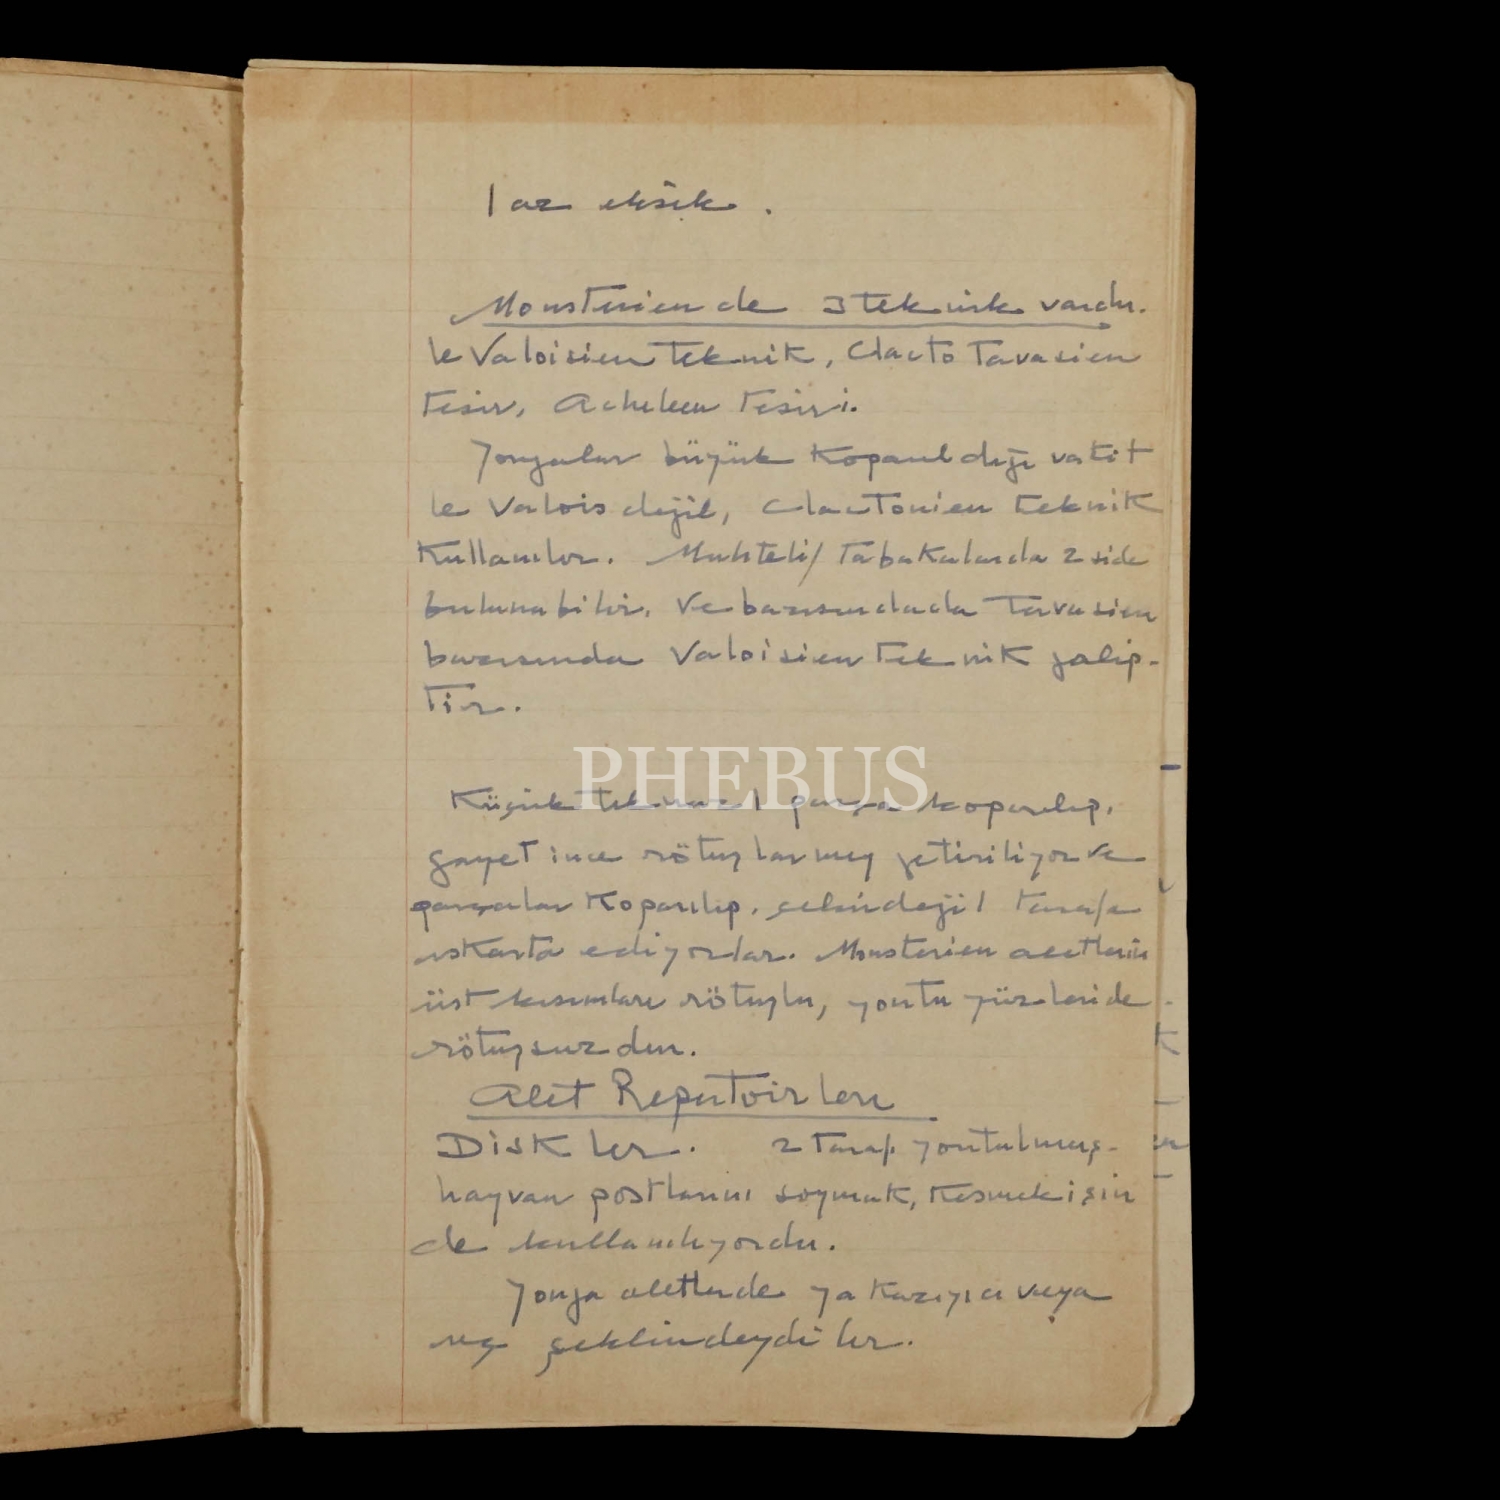 1 az eksik.
Mousterien de 3 teknik vardır.
le Valoisien Teknik, Clacto Tavasien
tesir, Acheleen tesiri.
Yongalar büyük koparıldığı vakit
le Valois değil, Clactonien teknik
Kullanılır. Muhtelif Tabakalarda 2 side
bulunabilir. Ve bazısındada Tavasien
bazısında Valoisien Teknik galip-
tir.
PHEBUS
Küçük parça koparılıp,
gayet ince rötuşlar getiriliyor ve
parçalar Koparılıp, 1 tarafa
ıskarta ediyorlar. Mousterien aletlerin
üst kısımları rötuşlu, yontu yüzleride
rötuşsuzdur.
Alet Repertoirleri
Diskler. 2 Taraf. yontulmuş.
hayvan postlarını soymak, Kesmek için
de kullanılıyordu.
Yonga aletlerde ya Kazıyıcı veya
uç şeklindeydiler.